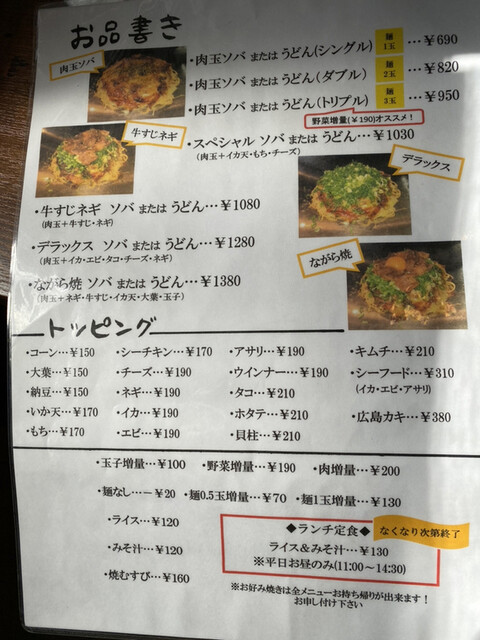 お品書き
肉玉ソバ
・肉玉ソバ または うどん(シングル) 麺1玉 …￥690
・肉玉ソバ または うどん(ダブル) 麺2玉 …￥820
・肉玉ソバ または うどん(トリプル) 麺3玉 …￥950
野菜増量(￥190)オススメ!
牛すじネギ
・スペシャル ソバ または うどん…￥1030
(肉玉＋イカ天・もち・チーズ)
デラックス
・牛すじネギ ソバ または うどん…￥1080
(肉玉＋牛すじ・ネギ)
・デラックス ソバ または うどん…￥1280
(肉玉＋イカ・エビ・タコ・チーズ・ネギ)
ながら焼
・ながら焼 ソバ または うどん…￥1380
(肉玉＋ネギ・牛すじ・イカ天・大葉・玉子)
トッピング
・コーン…￥150 ・シーチキン…￥170 ・アサリ…￥190 ・キムチ…￥210
・大葉…￥150 ・チーズ…￥190 ・ウインナー…￥190 ・シーフード…￥310
(イカ・エビ・アサリ)
・納豆…￥150 ・ネギ…￥190 ・タコ…￥210
・いか天…￥170 ・イカ…￥190 ・ホタテ…￥210 ・広島カキ…￥380
・もち…￥170 ・エビ…￥190 ・貝柱…￥210
・玉子増量…￥100 ・野菜増量…￥190 ・肉増量…￥200
・麺なし…－￥20 ・麺0.5玉増量…￥70 ・麺1玉増量…￥130
・ライス…￥120
・みそ汁…￥120
・焼むすび…￥160
◆ランチ定食◆ なくなり次第終了
ライス＆みそ汁…￥130
※平日お昼のみ(11:00～14:30)
※お好み焼きは全メニューお持ち帰りが出来ます!
お申し付け下さい